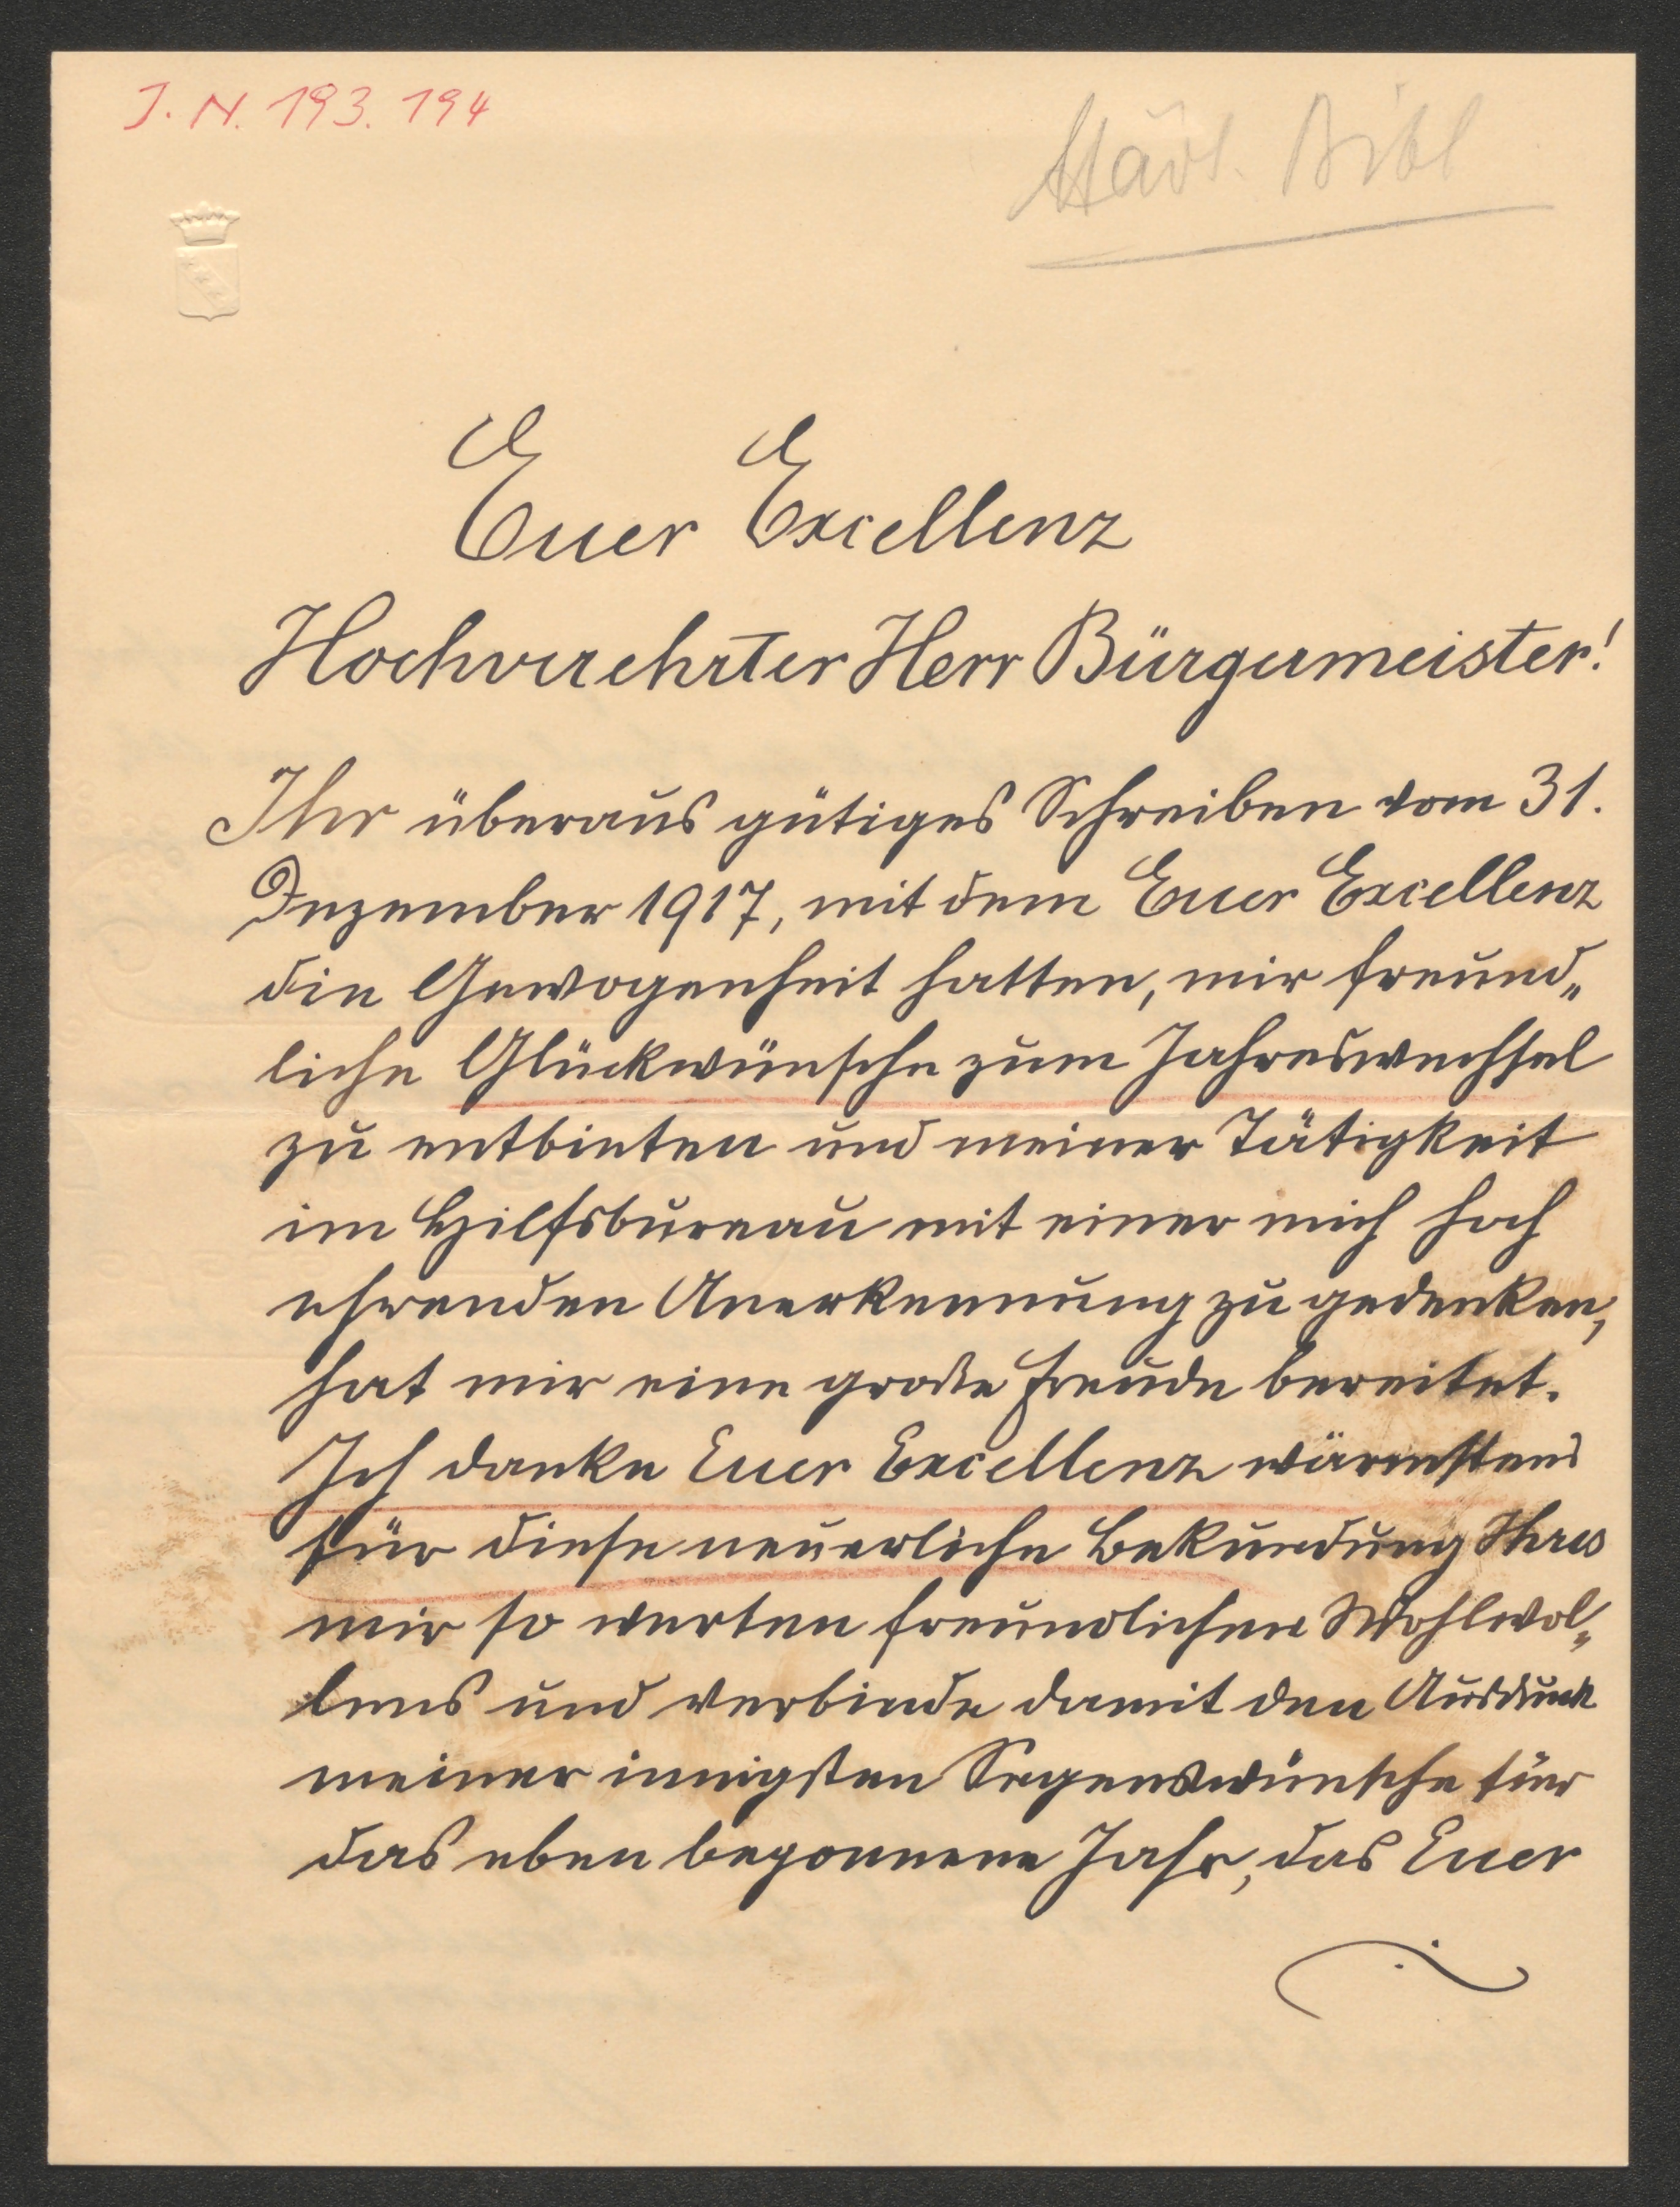 J. N. 193.194
Städt. Bibl
Euer Excellenz
Hochverehrter Herr Bürgermeister!
Ihr überaus gütiges Schreiben vom 31.
Dezember 1917, mit dem Euer Excellenz
die Gewogenheit hatten, mir freund„
liche Glückwünsche zum Jahreswechsel
zu entbieten und meiner Tätigkeit
im Hilfsbureau mit einer mich hoch
ehrenden Anerkennung zu gedenken,
hat mir eine große Freude bereitet.
Ich danke Euer Excellenz wärmstens
für diese neuerliche Bekundung Ihres
mir so werten freundlichen Wohlwol„
lens und verbinde damit den Ausdruck
meiner innigsten Segenswünsche für
das eben begonnene Jahr, das Euer